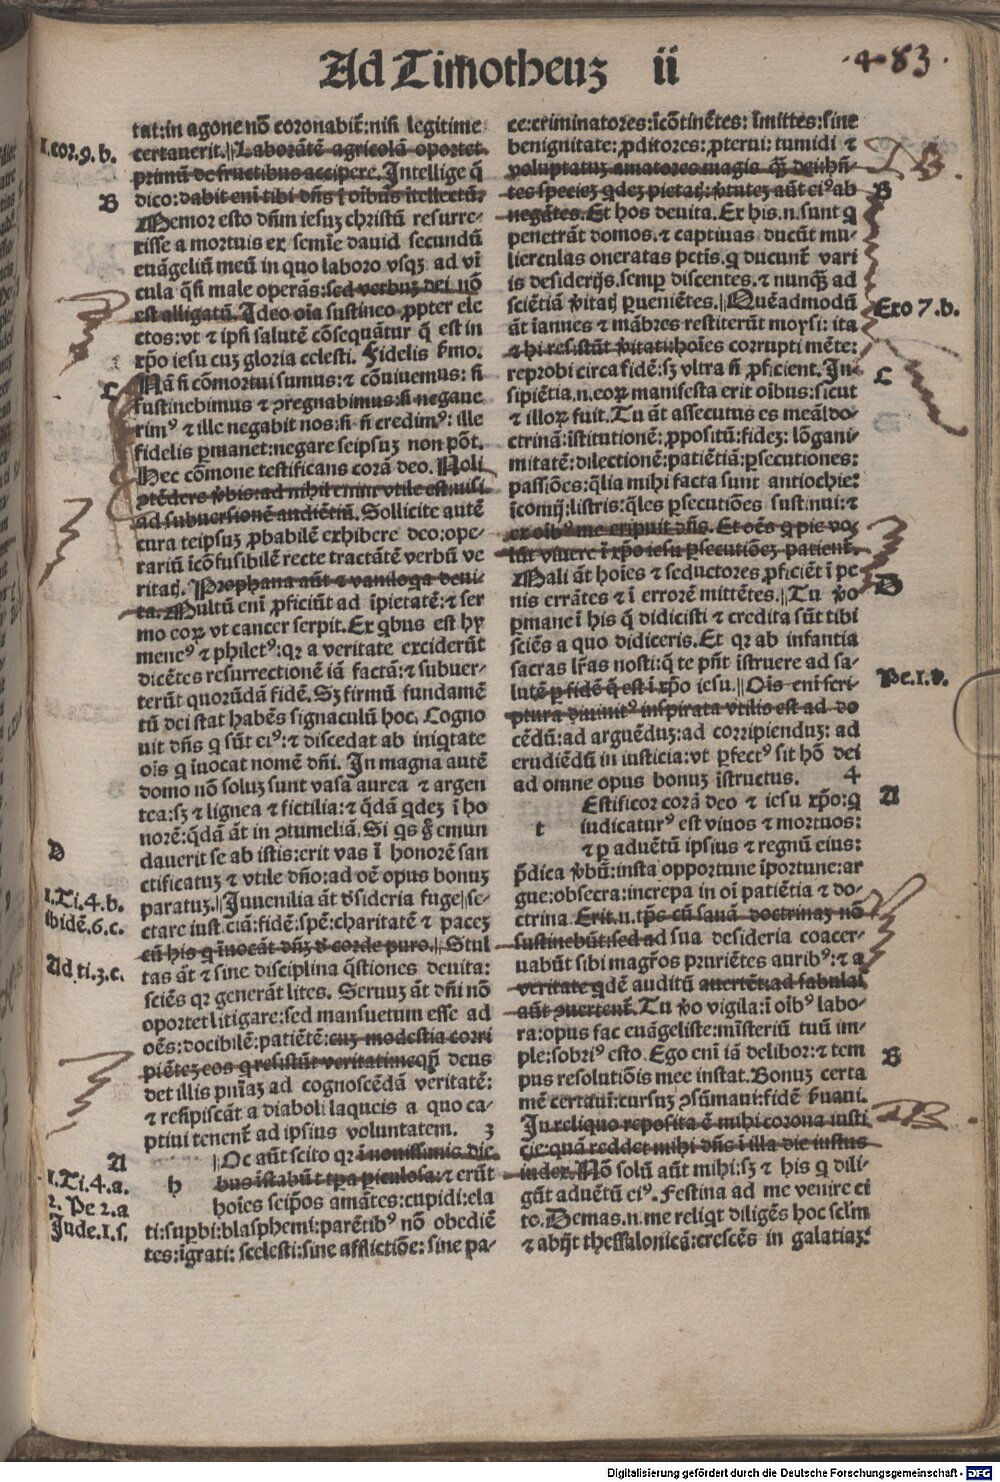 Ad Timotheuz ii
483
tat:in agone nō coronabit̄:nisi legitime
certauerit.||Laborātē agricolā oportet
primū de fructibus accipere. Intellige q̄
dico:dabit enī tibi dn̄s ī oībus ītellectū.
Memor esto dn̄m iesuz christū resurre-
xisse a mortuis ex semīe dauid secundū
euāgeliū meū in quo laboro vsqꝫ ad vī
cula q̄si male operās:sed verbuz dei nō
est alligatū. Ideo oīa sustineo ꝓpter ele
ctos:vt ⁊ ipsi salutē cōsequātur q̄ est in
xp̄o iesu cuz gloria celesti. Fidelis ẜmo.
Nā si cōmortui sumus:⁊ cōuiuemus: si
sustinebimus ⁊ ꝯregnabimus:si negaue
rimꝰ ⁊ ille negabit nos:si nō credimꝰ: ille
fidelis ꝑmanet:negare seipsuz non pōt.
Hec cōmone testificans corā deo. Noli
ꝯtēdere v̄bis:ad nihil enim vtile est:nisi
ad subuersionē audiētiū. Sollicite autē
cura teipsuꝫ ꝓbabilē exhibere deo:ope-
rariū īcōfusibilē recte tractātē verbū ve
ritatꝭ. Prophana aūt ⁊ vaniloqa deui-
ta. Multū enī ꝓficiūt ad īpietatē:⁊ ser
mo eoꝝ vt cancer serpit. Ex qbus est hy
meneꝰ ⁊ philetꝰ:qꝛ a veritate exciderūt
dicētes resurrectionē iā factā:⁊ subuer-
terūt quorūdā fidē. Sꝫ firmū fundamē
tū dei stat habēs signaculū hoc. Cogno
uit dn̄s q sūt eiꝰ:⁊ discedat ab iniqtate
oīs q īuocat nomē dn̄i. In magna autē
domo nō soluꝫ sunt vasa aurea ⁊ argen
tea:sꝫ ⁊ lignea ⁊ fictilia:⁊ q̄dā qdeꝫ ī ho
norē:q̄dā āt in ꝯtumeliā. Si qs g̊ emun
dauerit se ab istis:erit vas ī honorē san
ctificatuꝫ ⁊ vtile dn̄o:ad oē opus bonuꝫ
paratuꝫ.||Iuuenilia āt d̄sideria fuge||se-
ctare iusticiā:fidē:spē:charitatē ⁊ paceꝫ
cū his q īuocāt dn̄ꝫ d̄ corde puro.||Stul
tas āt ⁊ sine disciplina q̄stiones deuita:
sciēs qꝛ generāt lites. Seruuꝫ āt dn̄i nō
oportet litigare:sed mansuetum esse ad
oēs:docibilē:patiētē:cuꝫ modestia corri
piēteꝫ eos q resistūt veritati:neqn̄ deus
det illis pn̄iaꝫ ad cognoscēdā veritatē:
⁊ resipiscāt a diaboli laqueis a quo ca-
ptiui tenent̄ ad ipsius voluntatem. 3
||Oc aūt scito qꝛ ī nouissimis die
h bus īstabūt tp̄a piculosa:⁊ erūt
hoīes seip̄os amātes:cupidi:ela
ti:supbi:blasphemi:parētibꝰ nō obediē
tes:īgrati: scelesti:sine afflictiōe: sine pa-
1.cor.9.b.
B
C
D
1.Ti.4.b.
Ibidē.6.c.
Ad ti.3.c.
A
1.Ti.4.a.
2. Pe 2.a
Jude.1.s.
ce:criminatores:īcōtinētes: īmittes:sine
benignitate: ꝓditores: ꝓterui: tumidi ⁊
voluptatuꝫ amatores magis q̄ꝫ dei:hn̄-
tes specieꝫ qdeꝫ pietatꝭ: v̄tuteꝫ aūt eiꝰ ab
negātes. Et hos deuita. Ex his.n.sunt q
penetrāt domos.⁊ captiuas ducūt mu-
lierculas oneratas pctīs.q ducunt̄ vari
is desiderijs.semꝑ discentes.⁊ nunq̄ꝫ ad
sciētiā v̄itatꝭ ꝑueniētes.||Quēadmodū
āt iannes ⁊ mābres restiterūt moysi: ita
⁊ hi resistūt v̄itati:hoīes corrupti mēte:
reprobi circa fidē:sꝫ vltra nō ꝓficient. In-
sipiētia.n.eoꝝ manifesta erit oībus:sicut
⁊ illoꝝ fuit. Tu āt assecutus es meā||do-
ctrinā:īstitutionē:ꝓpositū:fideꝫ: lōgani-
mitatē:dilectionē:patiētiā:ꝑsecutiones:
passiōes:q̄lia mihi facta sunt antiochie:
īconij:listris:q̄les ꝑsecutiōes sustinui:⁊
ex oībꝰ me eripuit dn̄s. Et oēs q pie vo-
lūt viuere ī xp̄o iesu ꝑsecutiōeꝫ patient̄.
Mali āt hoīes ⁊ seductores ꝓficiēt ī pe
nis errātes ⁊ ī errorē mittētes.||Tu v̄o
ꝑmane ī his q̄ didicisti ⁊ credita sūt tibi
sciēs a quo didiceris. Et qꝛ ab infantia
sacras lr̄as nosti:q̄ te pn̄t īstruere ad sa-
lutē ꝑ fidē q̄ est ī xp̄o iesu.||Oīs enī scri-
ptura diuinitꝰ inspirata vtilis est ad do
cēdū:ad arguēduꝫ:ad corripienduꝫ: ad
erudiēdū in iusticia:vt ꝑfectꝰ sit hō dei
ad omne opus bonuꝫ īstructus. 4
Estificor corā deo ⁊ iesu xp̄o:q
t iudicaturꝰ est viuos ⁊ mortuos:
⁊ ꝑ aduētū ipsius ⁊ regnū eius:
p̄dica v̄bū:insta opportune īportune:ar
gue:obsecra:increpa in oī patiētia ⁊ do-
ctrina. Erit.n.tp̄s cū sanā doctrinaꝫ nō
sustinebūt:sed ad sua desideria coacer-
uabūt sibi magr̄os pruriētes auribꝰ:⁊ a
veritate qdē auditū auertēt:ad fabulas
aūt ꝯuertent̄. Tu v̄o vigila:ī oībꝰ labo-
ra:opus fac euāgeliste:mīsteriū tuū im-
ple:sobriꝰ esto. Ego enī iā delibor:⁊ tem
pus resolutiōis mee instat. Bonuꝫ certa
mē certaui:cursuꝫ ꝯsūmaui:fidē ẜuaui.
In reliquo reposita ē mihi corona iusti
cie:quā reddet mihi dn̄s ī illa die iustus
iudex. Nō solū aūt mihi:sꝫ ⁊ his q dili-
gūt aduētū eiꝰ. Festina ad me venire ci
to. Demas.n.me reliqt diligēs hoc sclm̄
⁊ abijt thessalonicā:crescēs in galatiaꝫ:
B
Exo 7.b.
C
D
Pe.1.d.
A
B